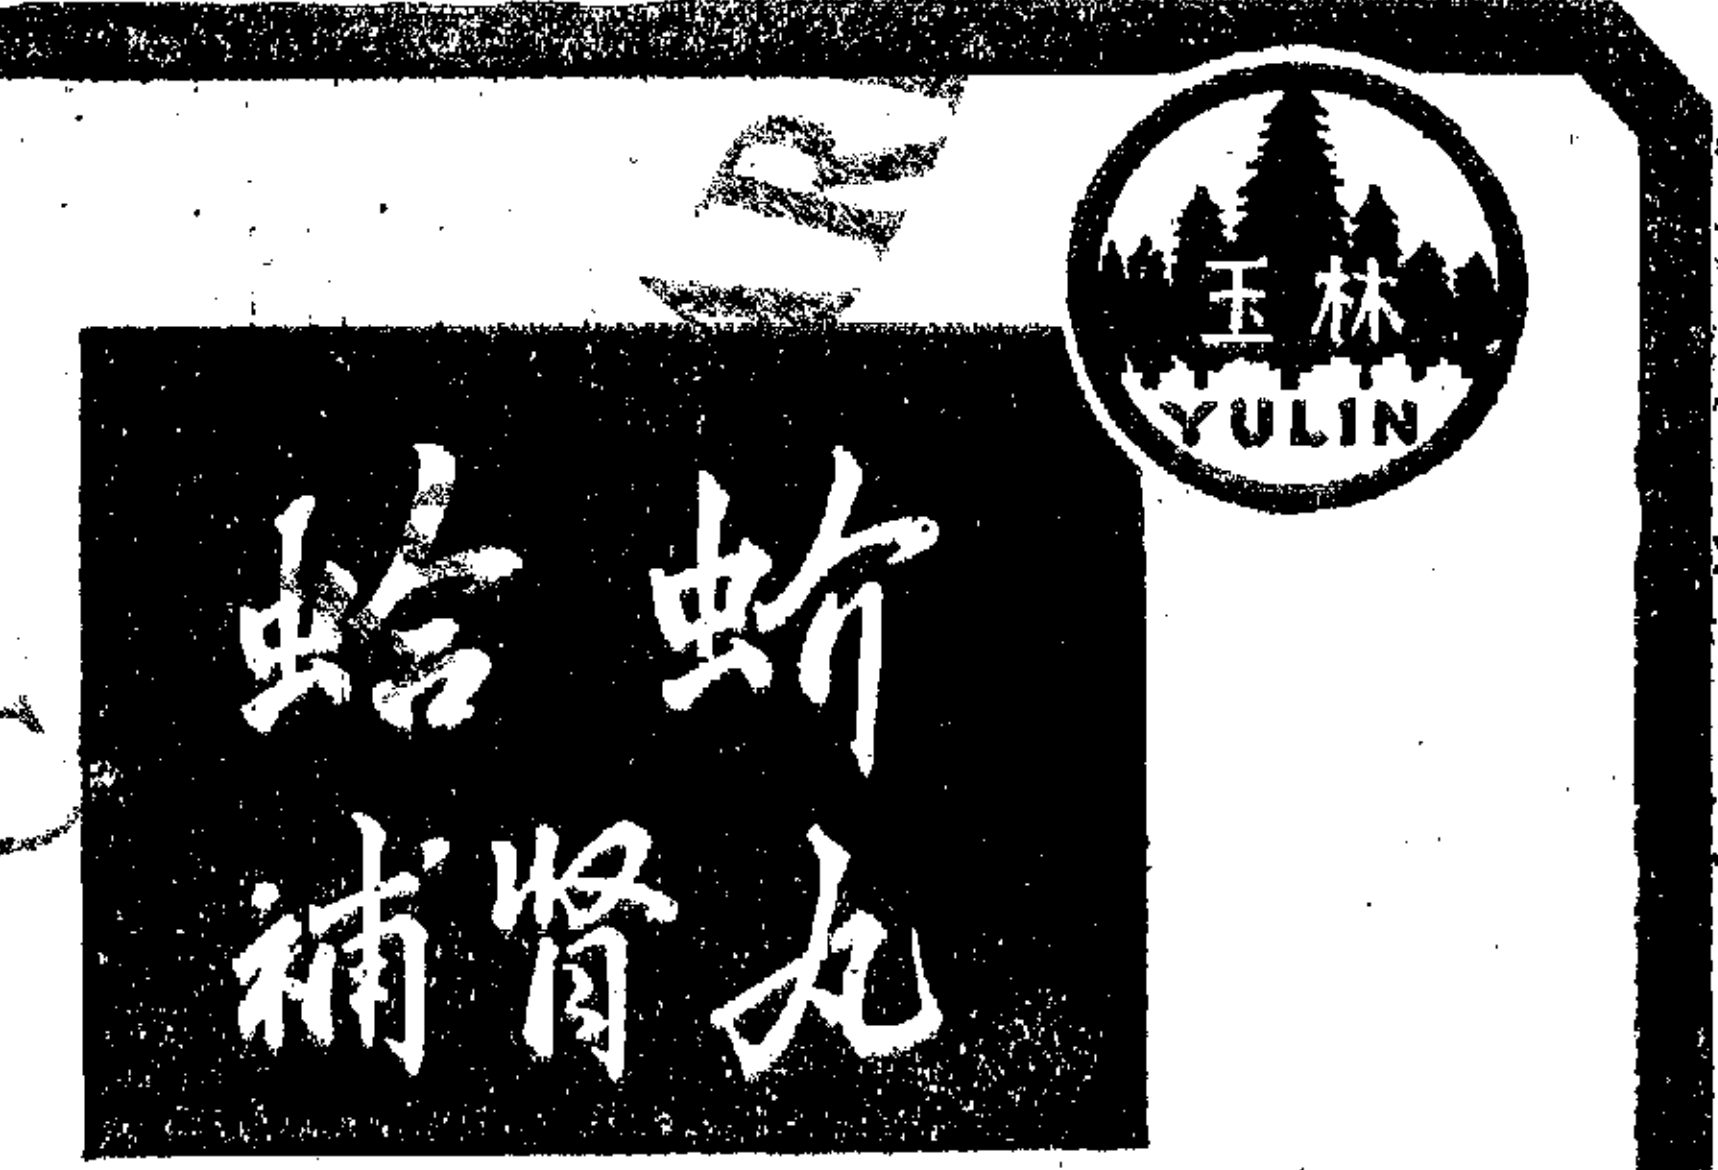 玉林
YULIN
蛤蚧
補腎丸